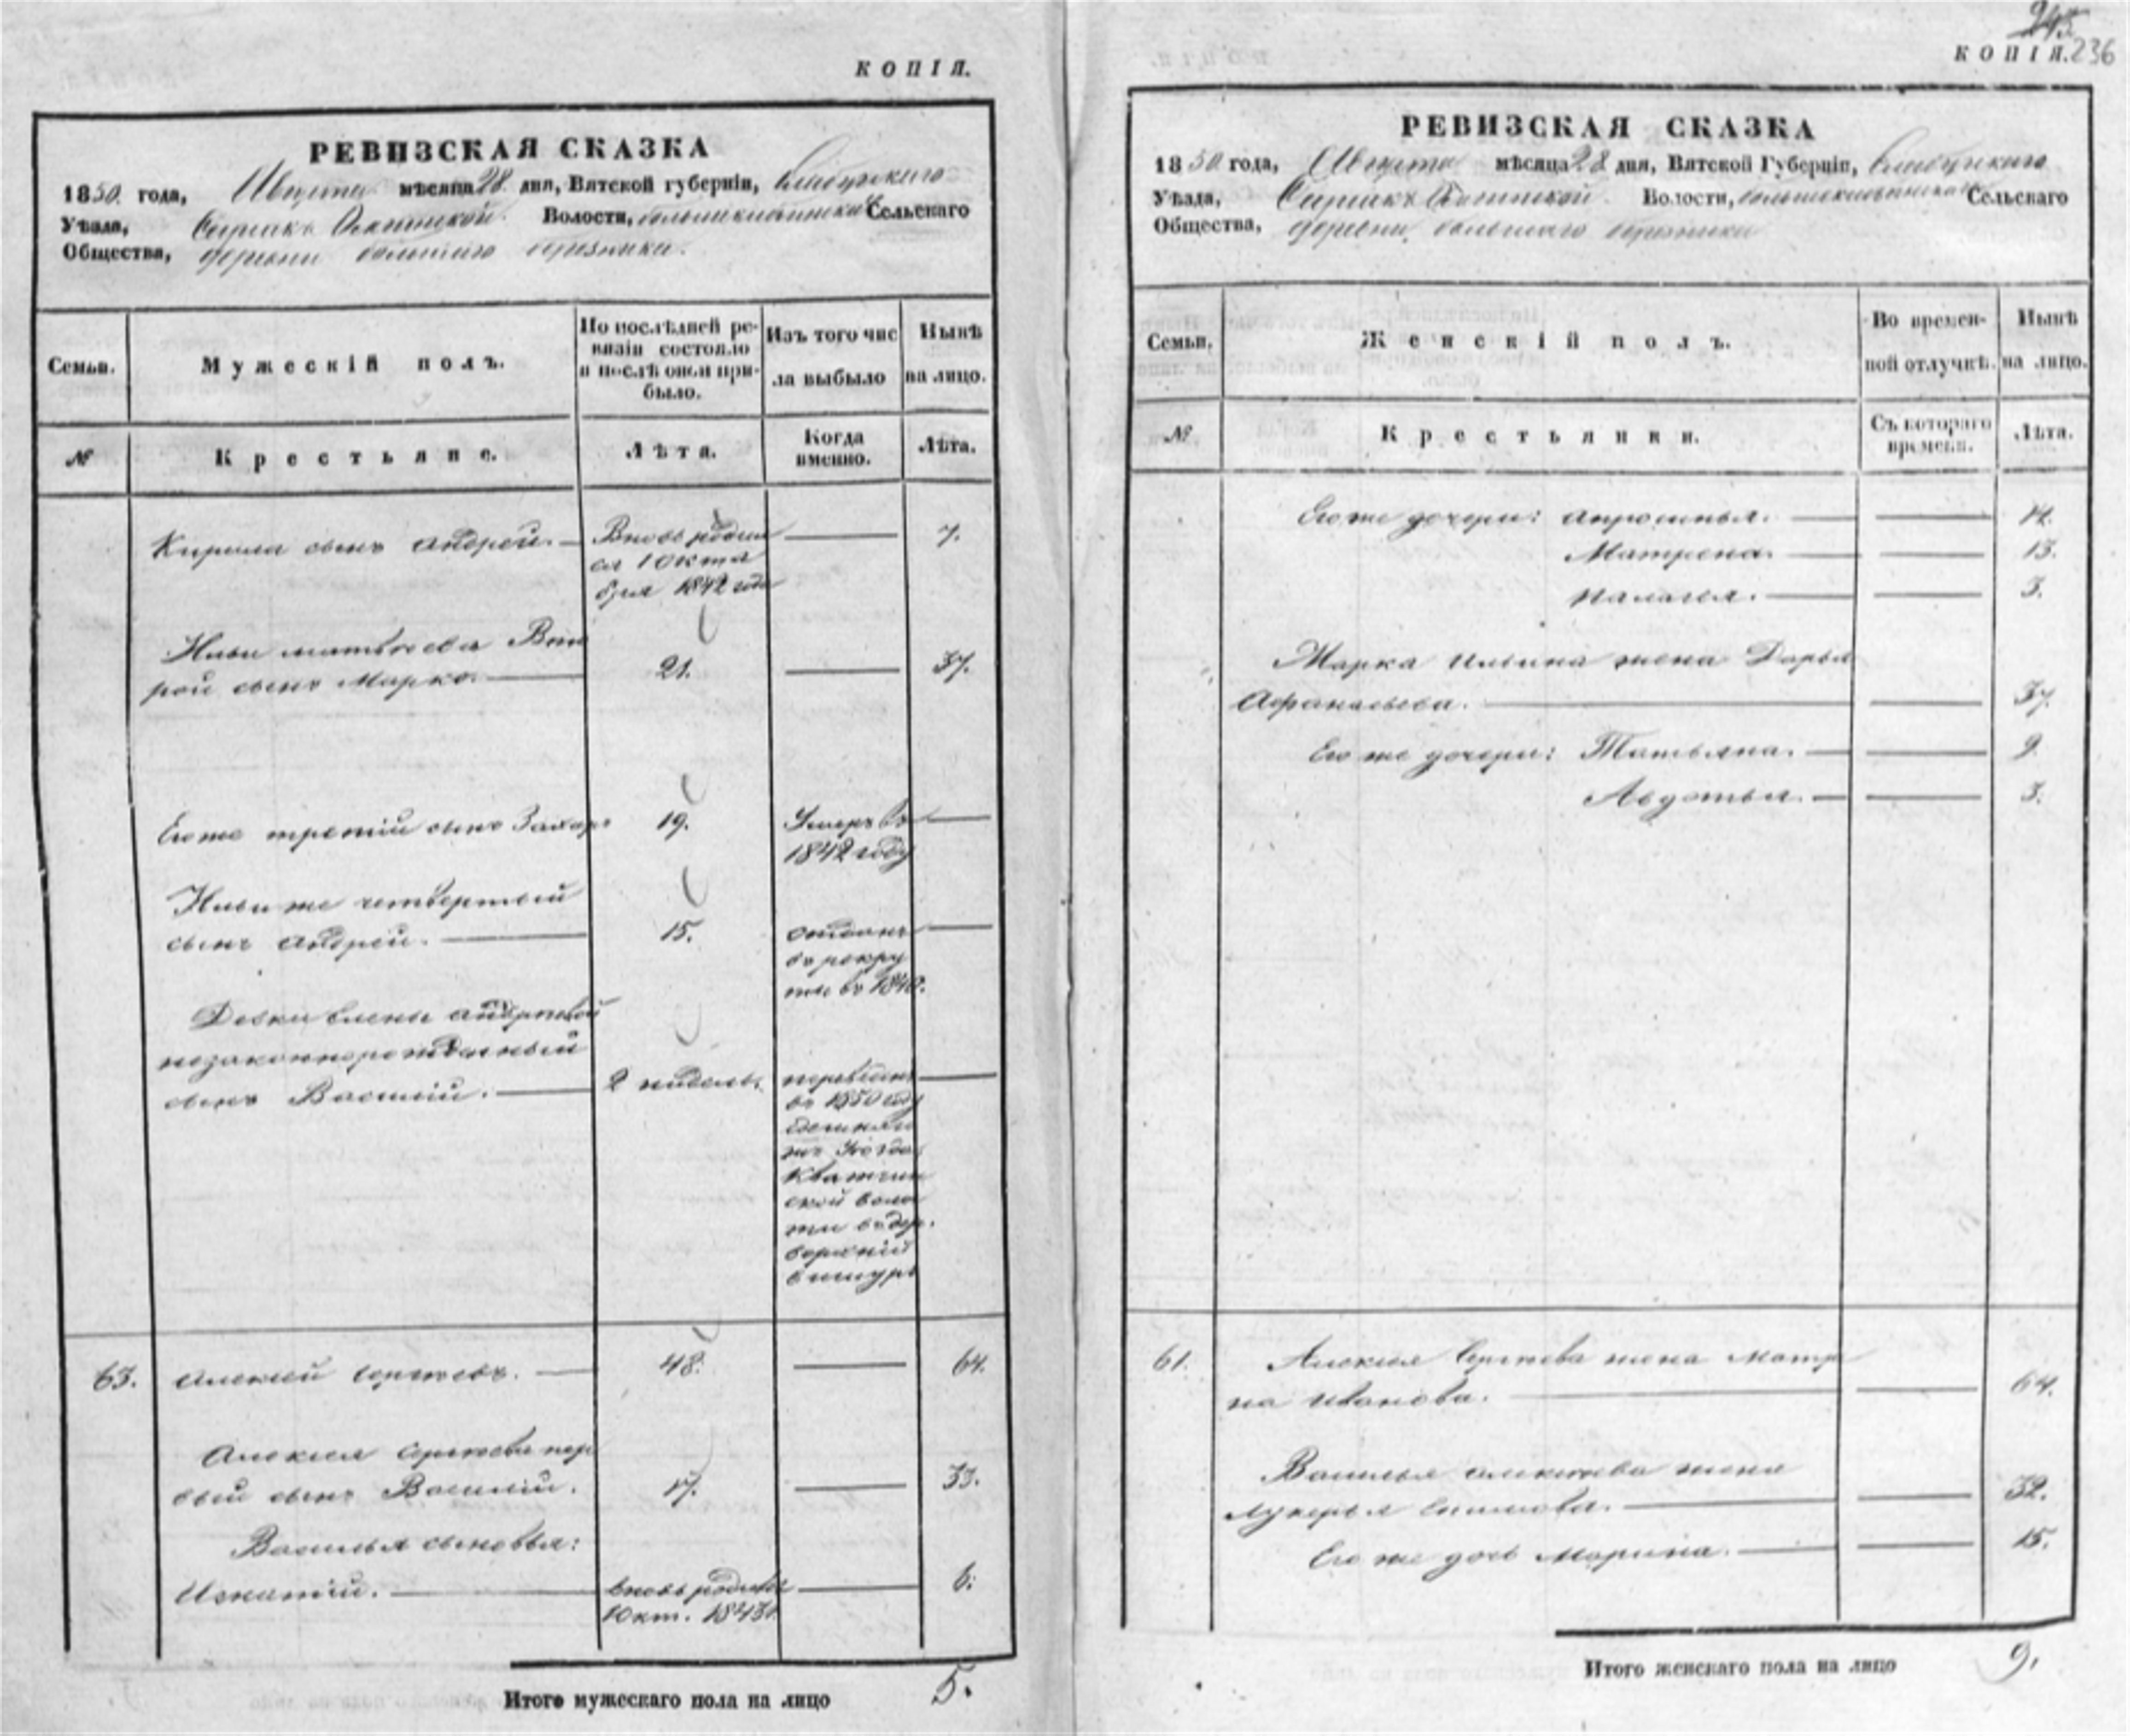 КОПІЯ.
РЕВИЗСКАЯ СКАЗКА
1850. года, Августа мѣсяца 28. дня, Вятской губерніи, Елабужскаго
Уѣзда, Волости, Сельскаго
Общества, деревни
Семьи.
Мужескій полъ.
По послѣдней ре-
визіи состояло
и послѣ оной при-
было.
Изъ того чис
ла выбыло
Нынѣ
на лицо.
№
Крестьяне.
Лѣта.
Когда
именно.
Лѣта.
Кирила сынъ Андрей. Вновь родил 7.
ся 1 Октя
бря 1842 года
Ильи Матвеева Вто
рой сынъ Марко. 21. 37.
Егоже третій сынъ Захаръ 19. Умеръ въ
1842 году
Ильи же четвертый
сынъ Андрей. 15. отданъ
въ рекру
ты въ 1840.
Девки Елены Андреевой
незаконнорожденный
сынъ Василій. 2 недель.
въ 1850 году
Уезда
ской воло
сти въ дер.
верхній
63. Алексей Сергеевъ. 48. 64.
Алексея Сергеева пер
вый сынъ Василій. 17. 33.
Василья сыновья:
Игнатій. вновь родился 6.
1 Окт. 1843 г.
Итого мужескаго пола на лицо 5.
КОПІЯ. 236
РЕВИЗСКАЯ СКАЗКА
1850 года, Августа мѣсяца 28 дня, Вятской Губерніи, Елабужскаго
Уѣзда, Волости, Сельскаго
Общества, деревни
Семьи.
Женскій полъ.
Во времен-
ной отлучкѣ.
Нынѣ
на лицо.
№
Крестьянки.
Съ котораго
времени.
Лѣта.
Егоже дочери: Апросинья. 14.
Матрена. 13.
Палагея. 3.
Марка Ильина жена Дарья
Афанасьева. 37.
Его же дочери: Татьяна. 9.
Авдотья. 3.
61. Алексея Сергеева жена Матре
на Иванова. 64.
Василья Алексеева жена
Лукерья 32.
Его же дочь Марина. 15.
Итого женскаго пола на лицо 9.